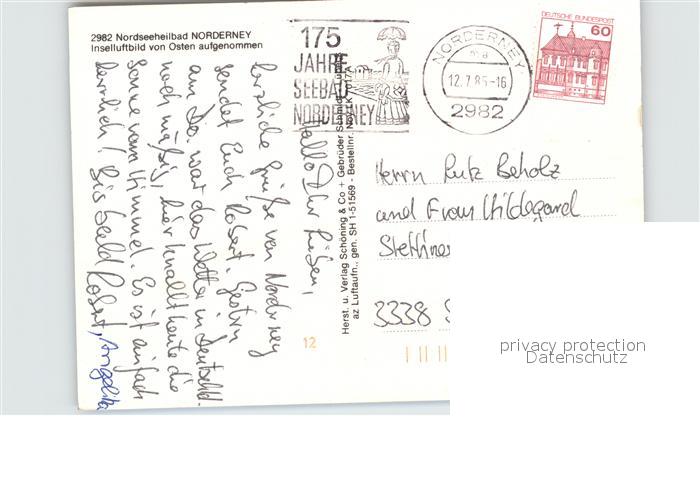 2982 Nordseeheilbad NORDERNEY
Inselluftbild von Osten aufgenommen
175
JAHRE
SEEBAD
NORDERNEY
NORDERNEY
12.7.85-16
2982
DEUTSCHE BUNDESPOST
60
Hallo Ihr Lieben,
herzliche Grüße von Norderney
sendet Euch Robert. Gestern
am Do. war das Wetter in Deutschl.
noch mäßig, hier knallt heute die
Sonne vom Himmel. Es ist einfach
herrlich! Bis bald Robert, Angelika
Herst. u. Verlag Schöning & Co + Gebrüder Schmidt, Lübeck
az Luftaufn., gen. SH 1-51569 - Bestellnr.
Herrn Lutz Beholz
und Frau Hildegard
3338
12
privacy protection
Datenschutz